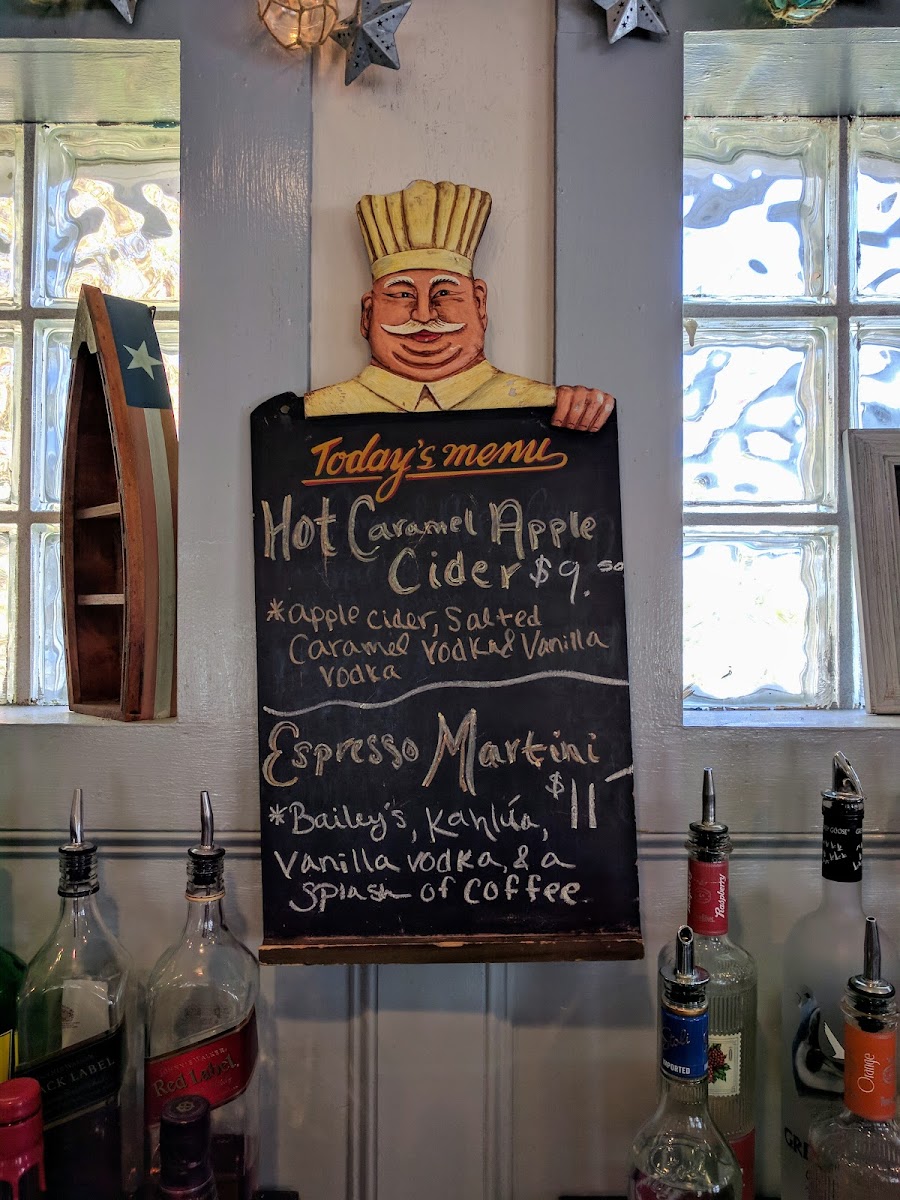 Today's menu
Hot Caramel Apple
Cider $9.50
*apple cider, Salted
Caramel vodka & Vanilla
vodka
Espresso Martini
$11
*Bailey's, Kahlúa,
Vanilla vodka, & a
splash of Coffee
Raspberry
Stoli
IMPORTED
Orange
Red Label